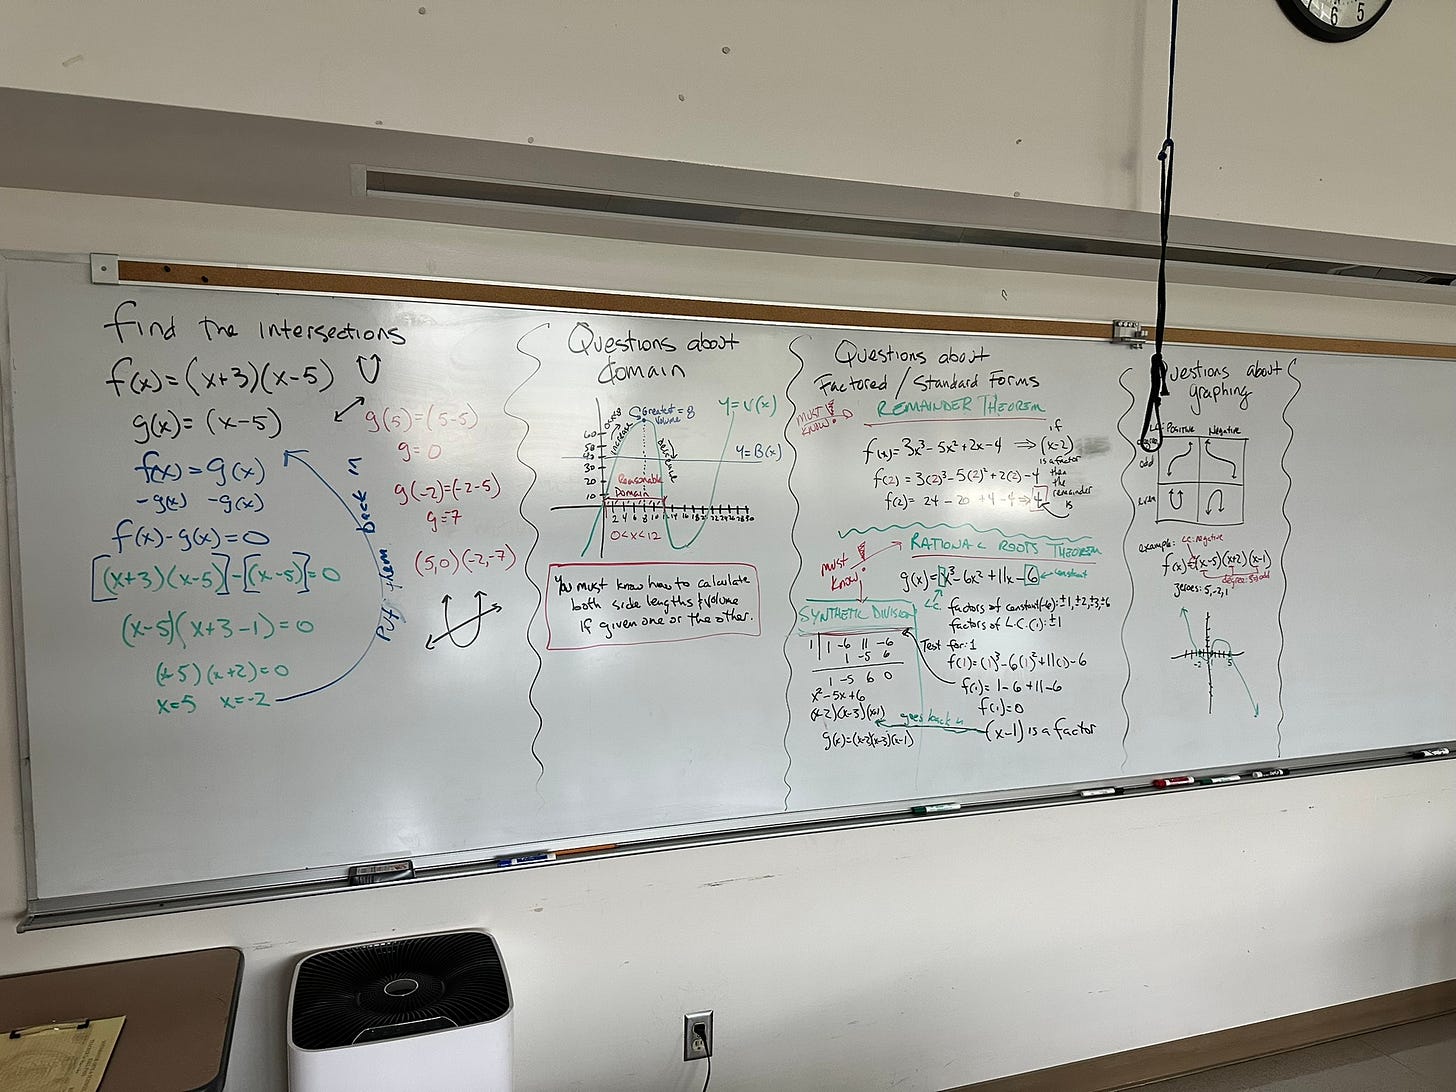 find the intersections
f(x)=(x+3)(x-5)
g(x)=(x-5)
f(x)=g(x)
-g(x) -g(x)
f(x)-g(x)=0
[(x+3)(x-5)]-[(x-5)]=0
(x-5)(x+3-1)=0
(x-5)(x+2)=0
x=5 x=-2
Put them back in
g(5)=(5-5)
g=0
g(-2)=(-2-5)
g=7
(5,0)(-2,-7)
Questions about
domain
Greatest = 8
Volume
y=V(x)
y=B(x)
increase
decrease
60
50
40
30
20
10
Reasonable
Domain
2 4 6 8 10 12 14 16 18 20 22 24 26 28 30
0<x<12
You must know how to calculate
both side lengths & volume
if given one or the other.
Questions about
Factored / Standard Forms
MUST
KNOW!
REMAINDER THEOREM
f(x)=3x³-5x²+2x-4 ⇒ (x-2)
if
is a factor
f(2)=3(2)³-5(2)²+2(2)-4
then
the
remainder
is
f(2)=24-20+4-4⇒4
must
know!
RATIONAL ROOTS THEOREM
g(x)=x³-6x²+11x-6 ← constant
L.C.
factors of constant(-6): ±1, ±2, ±3, ±6
factors of L.C.(1): ±1
SYNTHETIC DIVISION
1 | 1 -6 11 -6
1 -5 6
1 -5 6 0
x²-5x+6
(x-2)(x-3)(x-1)
g(x)=(x-2)(x-3)(x-1)
Test for: 1
f(1)=(1)³-6(1)²+11(1)-6
f(1)=1-6+11-6
f(1)=0
goes back in
(x-1) is a factor
Questions about
graphing
LC: Positive Negative
odd
example: LC: negative
f(x)=-(x-5)(x+2)(x-1)
degree: 3=odd
zeroes: 5,-2,1
-2 1 5
6 5